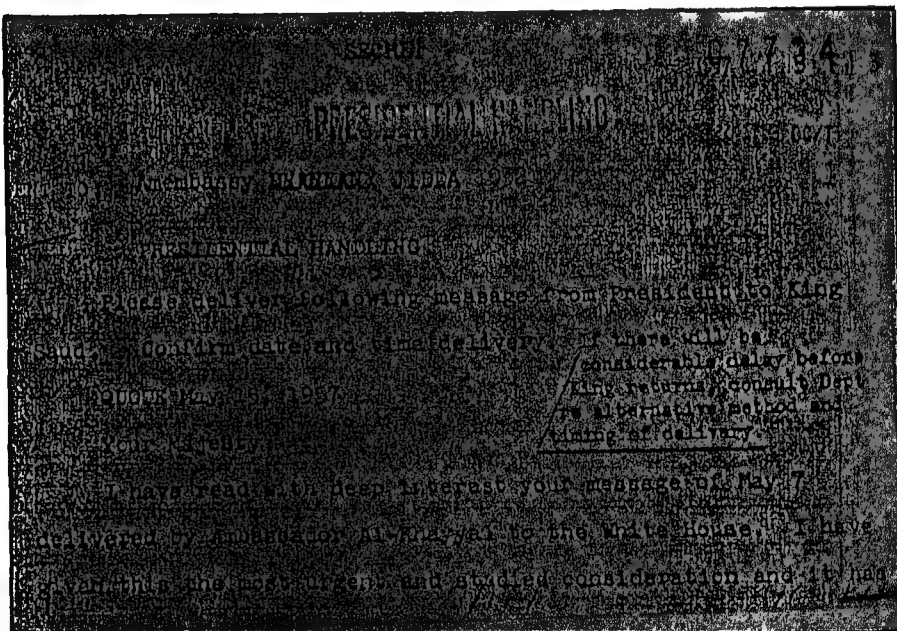 SECRET
07734
PRESIDENTIAL HANDLING
Amembassy JIDDA
PRESIDENTIAL HANDLING
Please deliver following message from President to King
Saud. Confirm date and time delivery. If there will be
considerable delay before
King returns, consult Dept
re alternative method and
timing of delivery.
QUOTE May 1957
Your Majesty:
I have read with deep interest your message of May 7
delivered by Ambassador Al-Khayyal to the White House. I have
given this the most urgent and studied consideration and it has